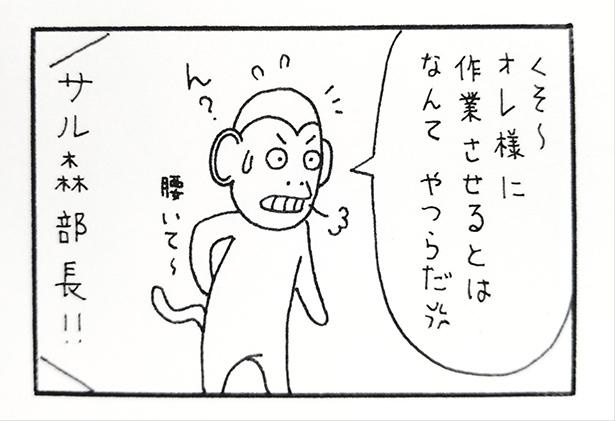 くそ～
オレ様に
作業させるとは
なんてやつらだ
ん?
腰いて～
サル森部長!!